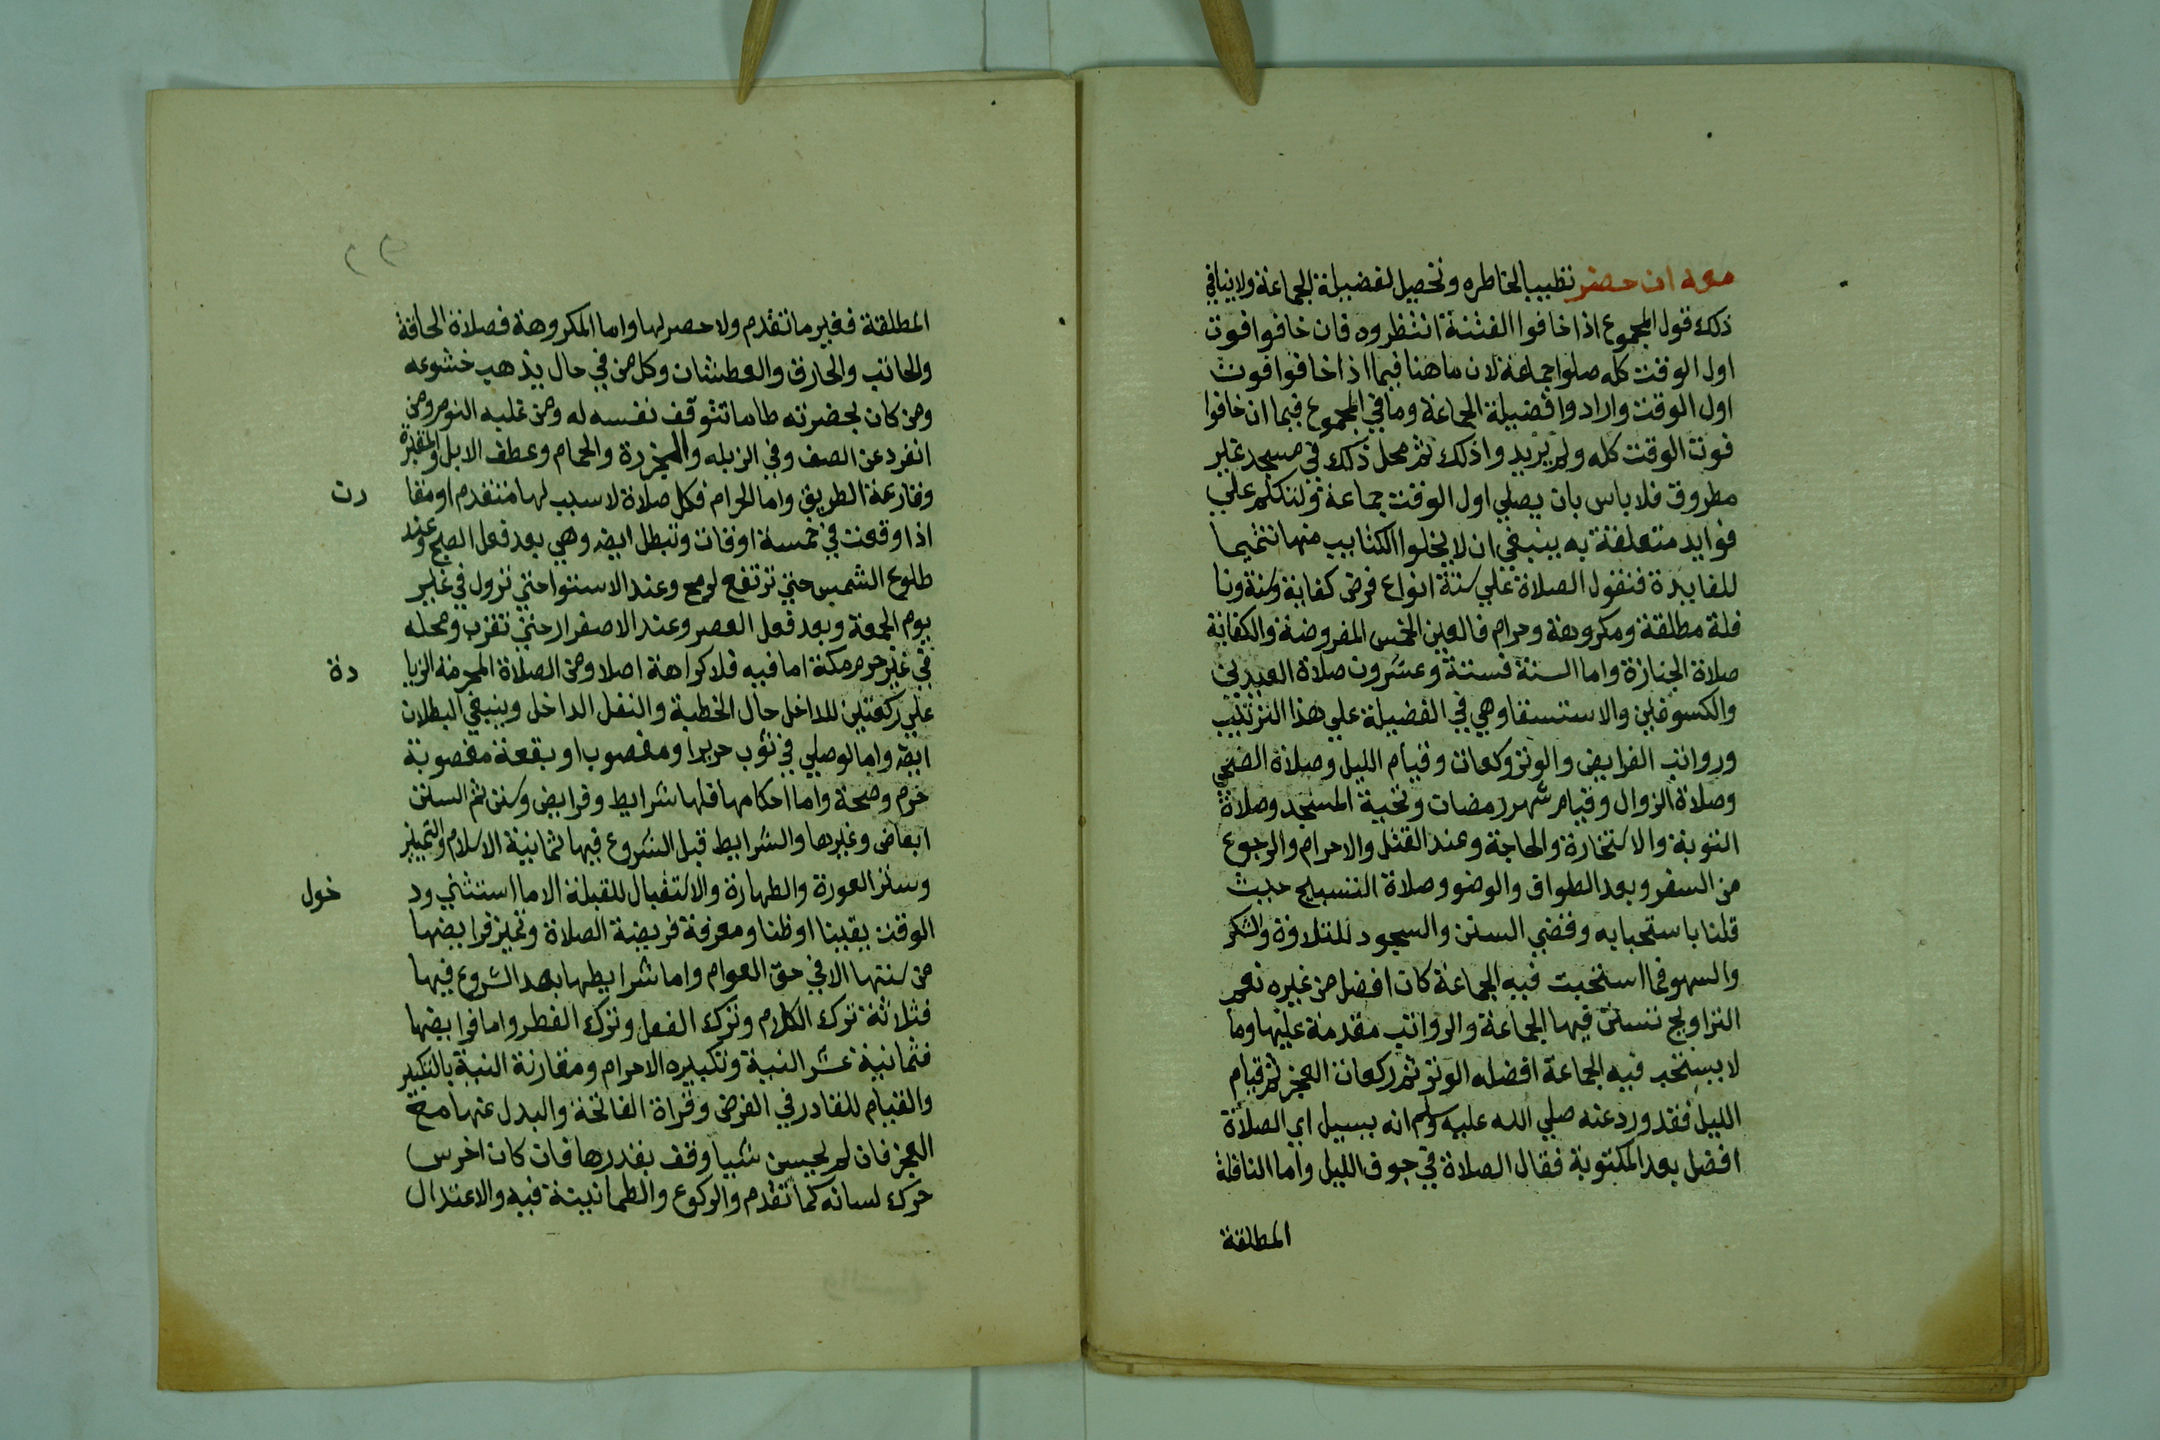 معه ان حضر تطييبا لخاطره وتحصيل لفضيلة الجماعة ولا ينافي
ذلك قول المجموع اذا خافوا الفتنة انتظروه فان خافوا فوت
اول الوقت كله صلوا جماعة لان ما هنا فيما اذا خافوا فوت
اول الوقت وارادوا فضيلة الجماعة وما في المجموع فيما ان خافوا
فوت الوقت كله ولم يريدوا ذلك ثم محل ذلك في مسجد غير
مطروق فلا باس بان يصلي اول الوقت جماعة ولنتكلم علي
فوايد متعلقة به ينبغي ان لا يخلوا الكتاب منها تتميما
للفايدة فنقول الصلاة علي ستة انواع فرض كفاية وسنة ونا
فلة مطلقة ومكروهة وحرام فالعين الخمس المفروضة والكفاية
صلاة الجنازة واما السنة فستة وعشرون صلاة العيدين
والكسوفين والاستسقا وهي في الفضيلة علي هذا الترتيب
ورواتب الفرايض والوتر وكعات وقيام الليل وصلاة الضحي
وصلاة الزوال وقيام شهر رمضات وتحية المسجد وصلاة
التوبة والاستخارة والحاجة وعند القتل والاحرام والرجوع
من السفر وبعد الطواف والوضو وصلاة التسبيح حيث
قلنا باستحبابه وفضي السنن والسجود للتلاوة والشكر
والسهو فما استحبت فيه الجماعة كان افضل من غيره نعم
التراويح تسن فيها الجماعة والرواتب مقدمة عليها وما
لا يستحب فيه الجماعة افضله الوتر ثم ركعات الفجر ثم قيام
الليل فقد ورد عنه صلي الله عليه وسلم انه يسيل اي الصلاة
افضل بعد المكتوبة فقال الصلاة في جوف الليل واما النافلة
المطلقة
٢٢
المطلقة فغير ما تقدم ولا حصر لها واما المكروهة فصلاة الحاقة
والحاتب والحازق والعطشان وكل من في حال يذهب خشوعه
ومن كان بحضرته طاما تتوقف نفسه له ومن غلبه النوم ومن
انفرد عن الصف وفي الزبله والمجزرة والحمام وعطف الابل والمقبرة
وقارعة الطريق واما الحرام فكل صلاة لا سبب لها متقدم او مقا
رت
اذا وقعت في خمسة اوقات وتبطل ايضه وهي بعد فعل الصبح وعند
طلوع الشمس حتي ترتفع لرمح وعند الاستوا حتي تزول في غير
يوم الجمعة وبعد فعل العصر وعند الاصفرار حتي تغرب ومحله
في غير حرم مكة اما فيه فلا كراهة اصلا ومن الصلاة المحرمة الزيا
دة
علي ركعتين للداخل حال الخطبة والنفل الداخل وينبغي البطلان
ايضه واما لو صلي في ثوب حريرا ومغصوب او بقعة مغصوبة
حرم وصحة واما احكامها فلها شرايط وفرايض وسنن ثم السنن
ابعاض وغيرها والشرايط قبل الشروع فيها ثمانية الاسلام والتمييز
وستر العورة والطهارة والاستقبال للقبلة الا ما استثني ود
خول
الوقت يقينا او ظنا ومعرفة فريضة الصلاة وتميز فرايضها
من سنتها الا في حق العوام واما شرايطها بعد الشروع فيها
فثلاثة ترك الكلام وترك الفعل وترك الفطر واما فرايضها
فثمانية عشر النية وتكبيره الاحرام ومقارنة النية بالتكبير
والقيام للقادر في الفرض وقراة الفاتحة والبدل عنها مع
العجز فان لم يحسن شيا وقف بقدرها فان كان اخرس
حرك لسانه كما تقدم والركوع والطمانينة فيه والاعتدال